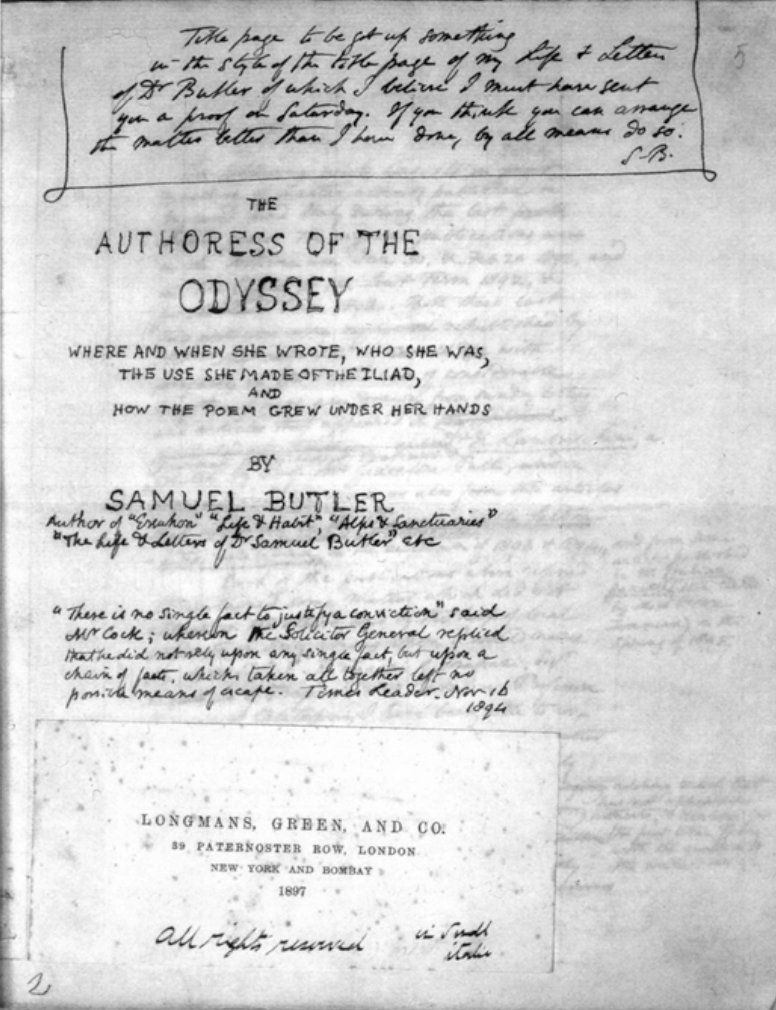 Title page to be got up something
in the style of the title page of my Life & Letters
of Dr Butler of which I believe I must have sent
you a proof on Saturday. If you think you can arrange
the matter better than I have done, by all means do so.
S.B.
5
THE
AUTHORESS OF THE
ODYSSEY
WHERE AND WHEN SHE WROTE, WHO SHE WAS,
THE USE SHE MADE OF THE ILIAD,
AND
HOW THE POEM GREW UNDER HER HANDS
BY
SAMUEL BUTLER
Author of "Erewhon" "Life & Habit", "Alps & Sanctuaries"
"The Life & Letters of Dr Samuel Butler" etc
"There is no single fact to justify a conviction" said
Mr Cock; whereon the Solicitor General replied
that he did not rely upon any single fact, but upon a
chain of facts, which taken all together left no
possible means of escape. Times Leader. Nov 16
1894
LONGMANS, GREEN, AND CO.
39 PATERNOSTER ROW, LONDON
NEW YORK AND BOMBAY
1897
All rights reserved
in small
italic
2